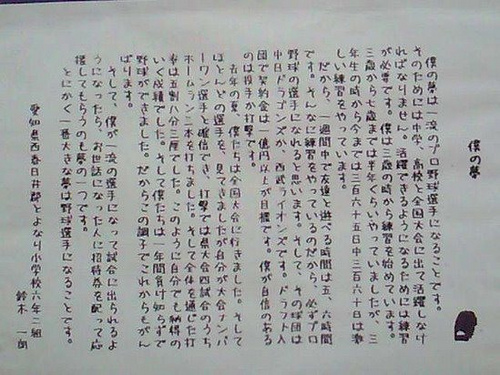 僕の夢
僕の夢は一流のプロ野球選手になることです。
そのためには中学、高校と全国大会に出て活躍しなけ
ればなりません。活躍できるようになるためには練習
が必要です。僕は三歳の時から練習を始めています。
三歳から七歳までは半年くらいやっていましたが、三
年生の時から今までは三百六十五日中三百六十日は激
しい練習をやっています。
だから、一週間中で友達と遊べる時間は五、六時間
です。そんなに練習をやっているのだから、必ずプロ
野球の選手になれると思います。そして、その球団は
中日ドラゴンズか、西武ライオンズです。ドラフト入
団で契約金は一億円以上が目標です。僕が自信のある
のは投手か打撃です。
去年の夏、僕たちは全国大会に行きました。そして
ほとんどの選手を見てきましたが自分が大会ナンバ
ーワン選手と確信でき、打撃では県大会四試合のうち
ホームラン三本を打ちました。そして全体を通した打
率は五割八分三厘でした。このように自分でも納得の
いく成績でした。そして僕たちは一年間負け知らずで
野球ができました。だからこの調子でこれからもがん
ばります。
そして、僕が一流の選手になって試合に出られるよ
うになったら、お世話になった人に招待券を配って応
援してもらうのも夢の一つです。
とにかく一番大きな夢は野球選手になることです。
愛知県西春日井郡とよなり小学校六年二組
鈴木 一朗